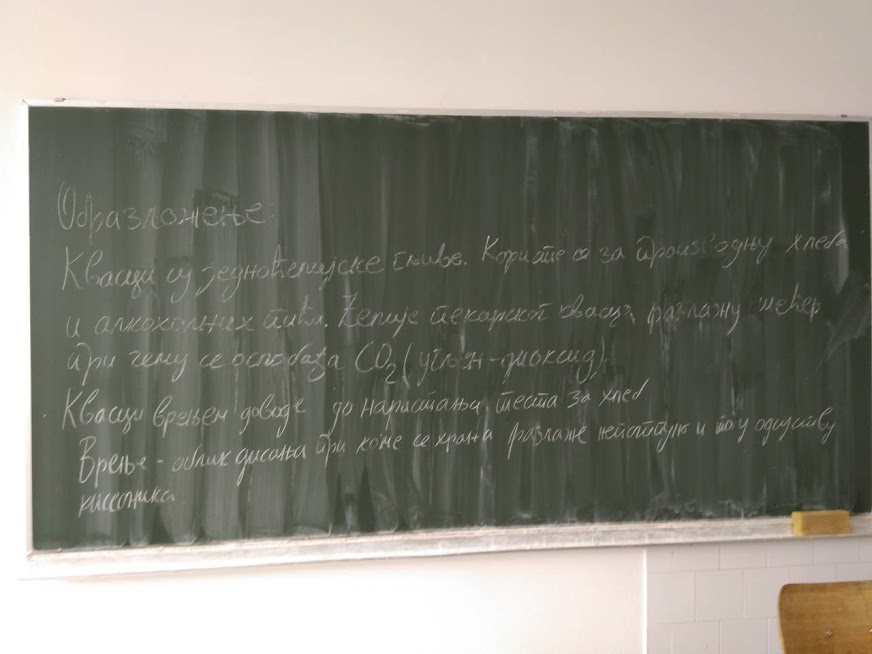 Образложење:
Квасци су једноћелијске гљиве. Користе се за производњу хлеба
и алкохолних пића. Ћелије пекарског квасца разлажу шећер
при чему се ослобађа CO₂ (угљен-диоксид).
Квасци врењем доводе до нарастања теста за хлеб
Врење - облик дисања при коме се храна разлаже непотпуно и то у одсуству
кисеоника